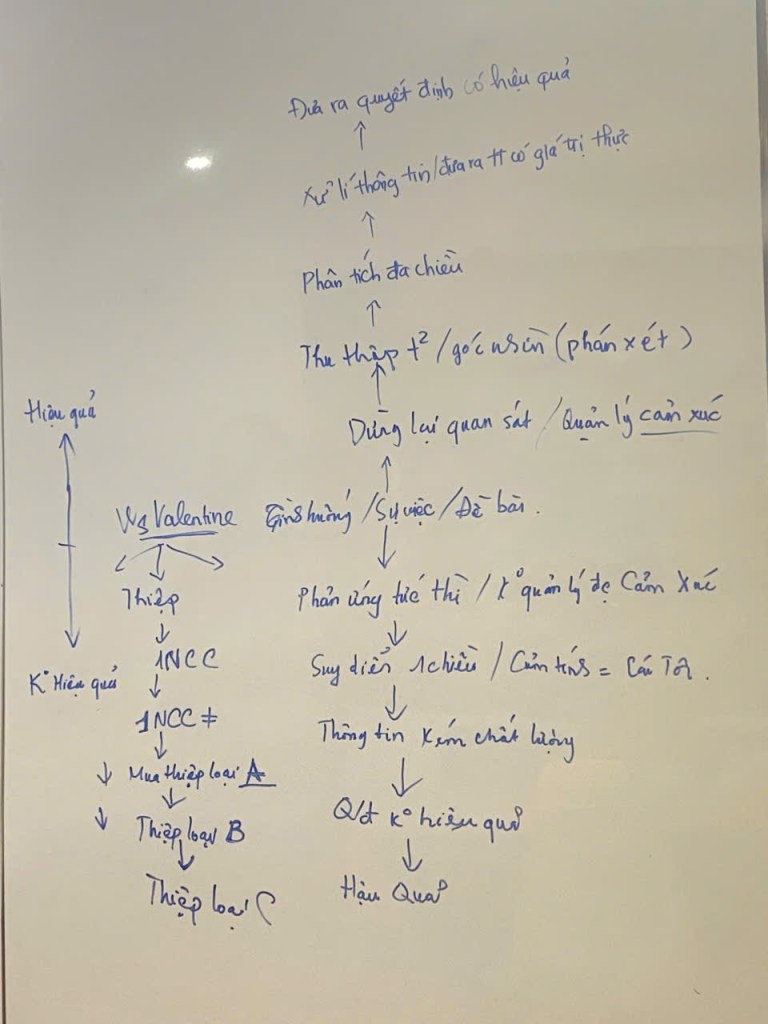 Đưa ra quyết định có hiệu quả
Xử lí thông tin/đưa ra tt có giá trị thực
Phân tích đa chiều
Thu thập t² / góc nhìn (phán xét)
Dừng lại quan sát / Quản lý cảm xúc
Tình huống / Sự việc / Đề bài.
Phản ứng tức thì / K° quản lý đc Cảm Xúc
Suy diễn 1 chiều / Cảm tính = Cái Tôi.
Thông tin kém chất lượng
Q/đ K° hiệu quả
Hậu Quả
Hiệu quả
K° Hiệu quả
Ws Valentine
Thiệp
1NCC
1NCC ≠
Mua thiệp loại A
Thiệp loại B
Thiệp loại C